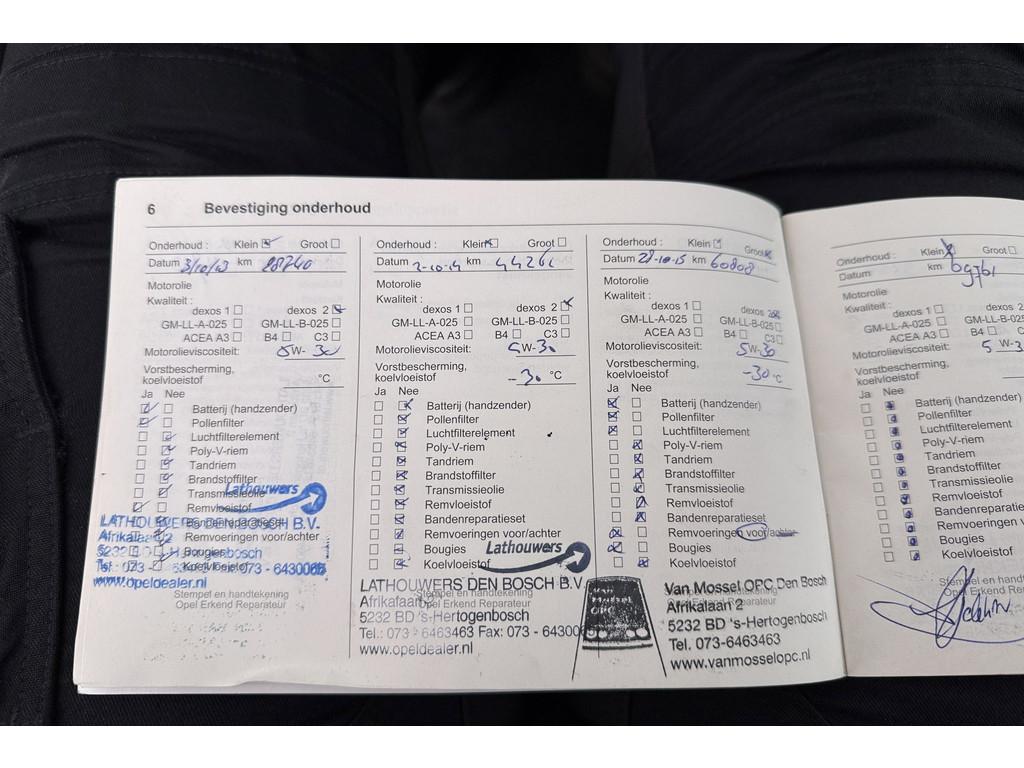 6 Bevestiging onderhoud
Onderhoud : Klein Groot
Datum 3/10/13 km 28740
Motorolie
Kwaliteit :
dexos 1 dexos 2
GM-LL-A-025 GM-LL-B-025
ACEA A3 B4 C3
Motorolieviscositeit: 5W-30
Vorstbescherming,
koelvloeistof °C
Ja Nee
Batterij (handzender)
Pollenfilter
Luchtfilterelement
Poly-V-riem
Tandriem
Brandstoffilter
Transmissieolie
Remvloeistof
Bandenreparatieset
Remvoeringen voor/achter
Bougies
Koelvloeistof
Stempel en handtekening
Opel Erkend Reparateur
Lathouwers
LATHOUWERS DEN BOSCH B.V.
Afrikalaan 2
5232 BD 's-Hertogenbosch
Tel.: 073 - 6463463 Fax: 073 - 6430065
www.opeldealer.nl
Onderhoud : Klein Groot
Datum 2-10-14 km
Motorolie
Kwaliteit :
dexos 1 dexos 2
GM-LL-A-025 GM-LL-B-025
ACEA A3 B4 C3
Motorolieviscositeit: 5W-30
Vorstbescherming,
koelvloeistof -30 °C
Ja Nee
Batterij (handzender)
Pollenfilter
Luchtfilterelement
Poly-V-riem
Tandriem
Brandstoffilter
Transmissieolie
Remvloeistof
Bandenreparatieset
Remvoeringen voor/achter
Bougies
Koelvloeistof
Lathouwers
LATHOUWERS DEN BOSCH B.V.
Stempel en handtekening
Afrikalaan
Opel Erkend Reparateur
5232 BD 's-Hertogenbosch
Tel.: 073 - 6463463 Fax: 073 - 643006
www.opeldealer.nl
Onderhoud : Klein Groot
Datum 28-10-15 km 60808
Motorolie
Kwaliteit :
dexos 1 dexos
GM-LL-A-025 GM-LL-B-025
ACEA A3 B4 C3
Motorolieviscositeit: 5W-30
Vorstbescherming,
koelvloeistof -30 °C
Ja Nee
Batterij (handzender)
Pollenfilter
Luchtfilterelement
Poly-V-riem
Tandriem
Brandstoffilter
Transmissieolie
Remvloeistof
Bandenreparatieset
Remvoeringen voor/achter
Bougies
Koelvloeistof
Van Mossel OPC
Van Mossel OPC Den Bosch
Afrikalaan 2
5232 BD 's-Hertogenbosch
Tel. 073-6463463
www.vanmosselopc.nl
Onderhoud : Klein Groot
Datum km 69761
Motorolie
Kwaliteit :
dexos 1 dexos 2
GM-LL-A-025 GM-LL-B
ACEA A3 B4
Motorolieviscositeit: 5 W-3
Vorstbescherming,
koelvloeistof
Ja Nee
Batterij (handzender)
Pollenfilter
Luchtfilterelement
Poly-V-riem
Tandriem
Brandstoffilter
Transmissieolie
Remvloeistof
Bandenreparaties
Remvoeringen vo
Bougies
Koelvloeistof
Stempel en handteken
Opel Erkend Re